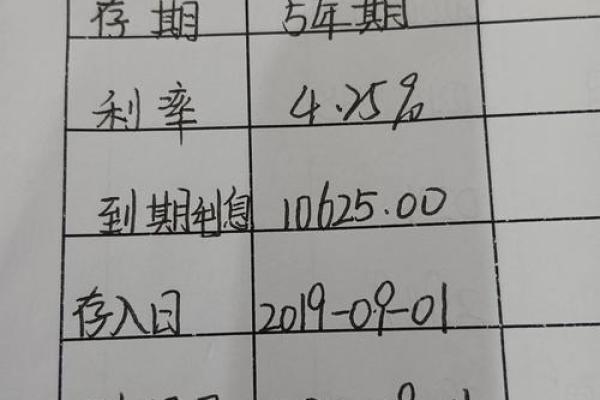 存期 5年期
利率 4.25%
到期利息 10625.00
存入日 2019-09-01